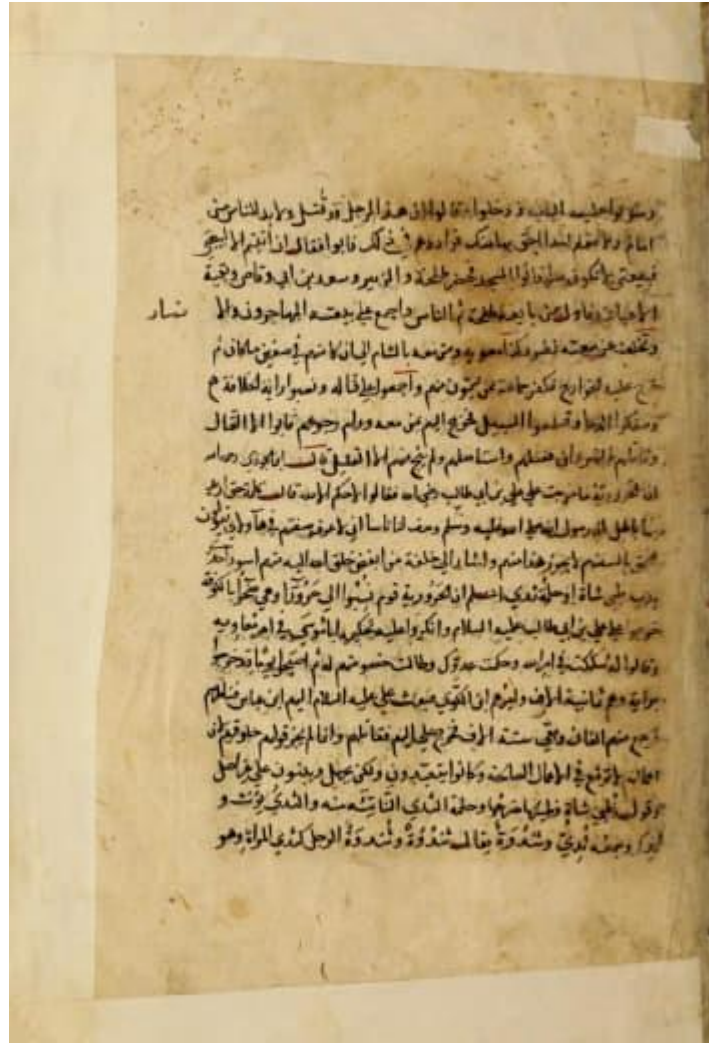 وسوروا عليه الباب ودخلوا فقالوا ان هذا الرجل قد قُتل ولا بد للناس من
امام ولا نعلم احدا احق بها منك فرادهم في ذلك فابوا فقال ان ابيتم الا بيعتي
فبيعتي لا تكون فاتوا المسجد فحضر طلحة والزبير وسعد بن ابي وقاص وبقية
الاعيان من بايعه طلحة ثم الناس واجمع على بيعته المهاجرون والا نصار
وتخلف عن بيعته معويه ومن معه بالشام الى ان كان منهم في صفين ما كان ثم
خرج عليه الخوارج فكفر جماعة ممن منهم واجمعوا على قتاله ونصبوا راية الخلافة هم
وسفكوا الدماء وقطعوا السبيل فخرج اليهم بمن معه ورام رجوعهم فابوا الا القتال
وقاتلهم فقتلهم واستاصلهم ولم ينج منهم الا القليل قال ابن الجوزي رحمه الله
ان الحرورية لما خرجت على علي بن ابي طالب رضي الله فقالوا لا حكم الا لله قال كلمة حق اريد
بها باطل ان رسول الله صلى الله عليه وسلم وصف لنا ناسا اني لاعرف صفتهم في هاولاء يقولون
الحق بالسنتهم لا يجوز هذا منهم واشار الى حلقه من ابغض خلق الله اليه منهم اسود احدى
يديه طبي شاة او حلمة ثدي اعلم ان الحرورية قوم نسبوا الى حروراء وهي صحرا بالكوفة
خرجوا على علي بن ابي طالب عليه السلام وانكروا عليه تحكيم ابا موسى في امر معاويه
وقالوا له شككت في امر الله وحكمت عدوك وطالت خصومتهم له ثم اصبحوا يوما وقد خرجوا
براية وهم ثمانية الاف واميرهم ابن الكوي فبعث علي عليه السلام اليهم ابن عباس فناظرهم
فرجع منهم الفان وبقي ستة الاف فخرج علي اليهم فقاتلهم وانما لم يجز قولهم حلوقهم لان
اعمالهم لا ترفع في الاعمال الصالحة وكانوا يتعبدون ولكن بجهل ويبنون على غير اصل
وقوله طبي شاة وطبيها ضرعها وحلمة الثدي الناتئه منه والثدي يؤنث و
يذكر وجمعه ثُدِيّ وثَنْدُوَة يقال ثُنْدُؤة وثَندوَة الرجل كثدي المراة وهو